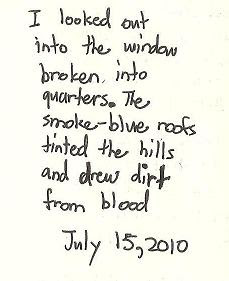 I looked out
into the window
broken into
quarters. The
smoke-blue roofs
tinted the hills
and drew dirt
from blood
July 15, 2010